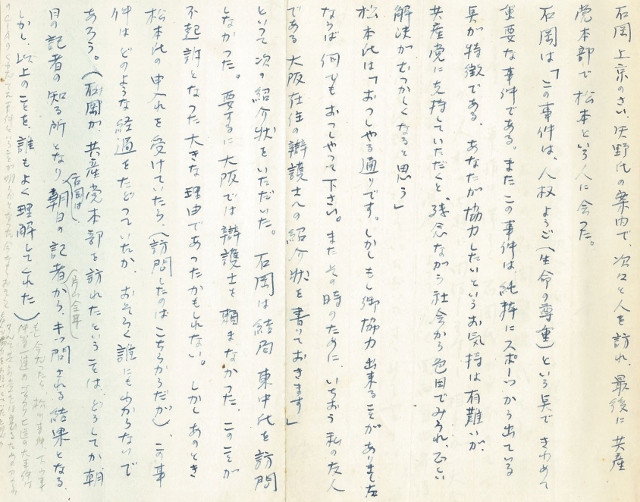 石岡上京のさい、矢野氏の案内で、次々と人を訪れ最後に共産
党本部で松本という人に会った。
石岡は「この事件は、人权ようご（生命の尊重）という点できわめて
重要な事件である。またこの事件は純粋にスポーツから出ている
点が特徴である。あなたが協力したいというお気持は有難いが、
共産党に支持していただくと、残念ながら社会から色目でみられ、正しい
解決がむつかしくなると思う」
松本氏は「おっしゃる通りです。しかしもし御協力出来ることがありました
ならば何でもおっしゃって下さい。またその時のために、いちおう私の友人
である大阪在住の辯護士への紹介状を書いておきます」
といって次の紹介状をいただいた。石岡は結局東中氏を訪問
しなかった。要するに大阪では辯護士を頼まなかった。このことが
不起訴となった大きな理由であったかもしれない。しかしあのとき
松本氏の申入れを受けていたら（訪問したのはこちらからだが）この事
件はどのような経過をたどっていたか、おそらく誰にもわからないで
あろう。（石岡が共産党本部を訪れたということは、どうしてか朝
日の記者の知る所となり、石岡は朝日の記者から、キツ問される結果となる。
しかし、以上のことを、誰もよく理解してくれた）